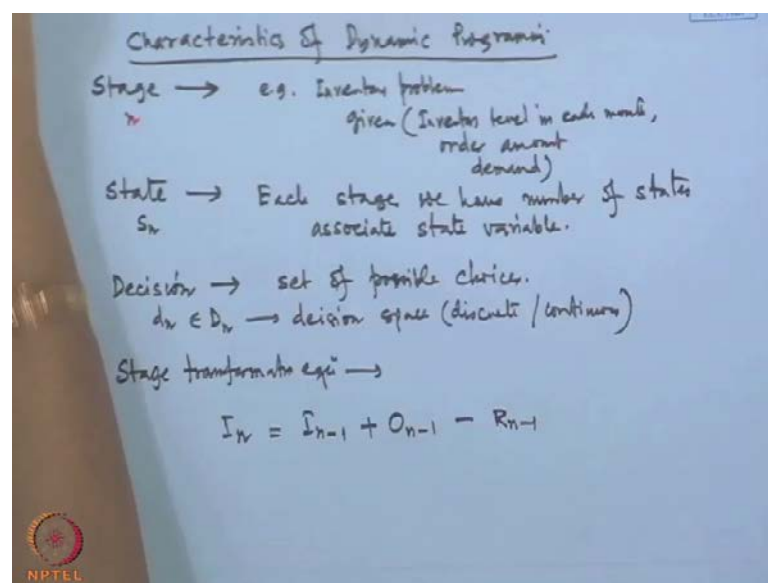 Characteristics of Dynamic Programmi
Stage → e.g. Inventory problem
n given (Inventory level in each month,
order amount
demand)
State → Each stage we have number of states
Sn associate state variable.
Decision → set of possible choices.
dn ∈ Dn → decision space (discrete / continuous)
Stage transformation eqn →
In = In-1 + On-1 - Rn-1
NPTEL